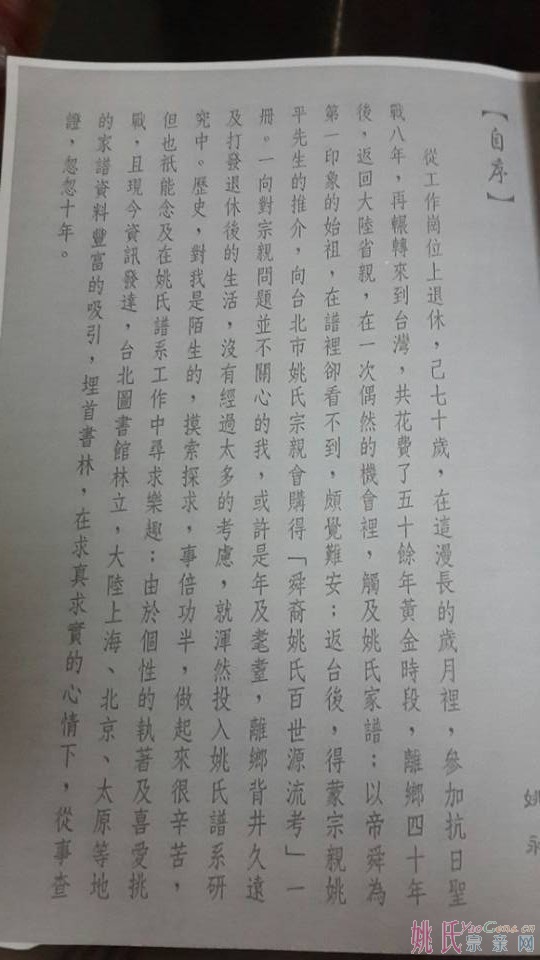 【自序】
姚
從工作崗位上退休，己七十歲，在這漫長的歲月裡，參加抗日聖
戰八年，再輾轉來到台灣，共花費了五十餘年黃金時段，離鄉四十年
後，返回大陸省親，在一次偶然的機會裡，觸及姚氏家譜：以帝舜為
第一印象的始祖，在譜裡卻看不到，頗覺難安；返台後，得蒙宗親姚
平先生的推介，向台北市姚氏宗親會購得「舜裔姚氏百世源流考」一
冊。一向對宗親問題並不關心的我，或許是年及耄耋，離鄉背井久遠
及打發退休後的生活，沒有經過太多的考慮，就渾然投入姚氏譜系研
究中。歷史，對我是陌生的，摸索探求，事倍功半，做起來很辛苦，
但也祇能念及在姚氏譜系工作中尋求樂趣：由於個性的執著及喜愛挑
戰，且現今資訊發達，台北圖書館林立，大陸上海、北京、太原等地
的家譜資料豐富的吸引，埋首書林，在求真求實的心情下，從事查
證，忽忽十年。
姚氏宗亲网
YaoGens.cn